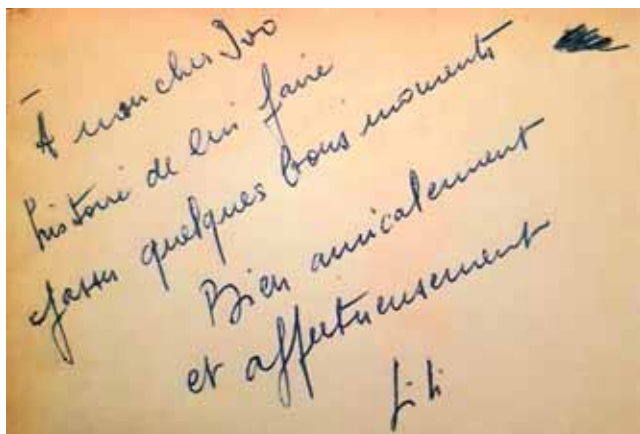 À mon cher Ivo
histoire de lui faire
passer quelques bons moments
Bien amicalement
et affectueusement